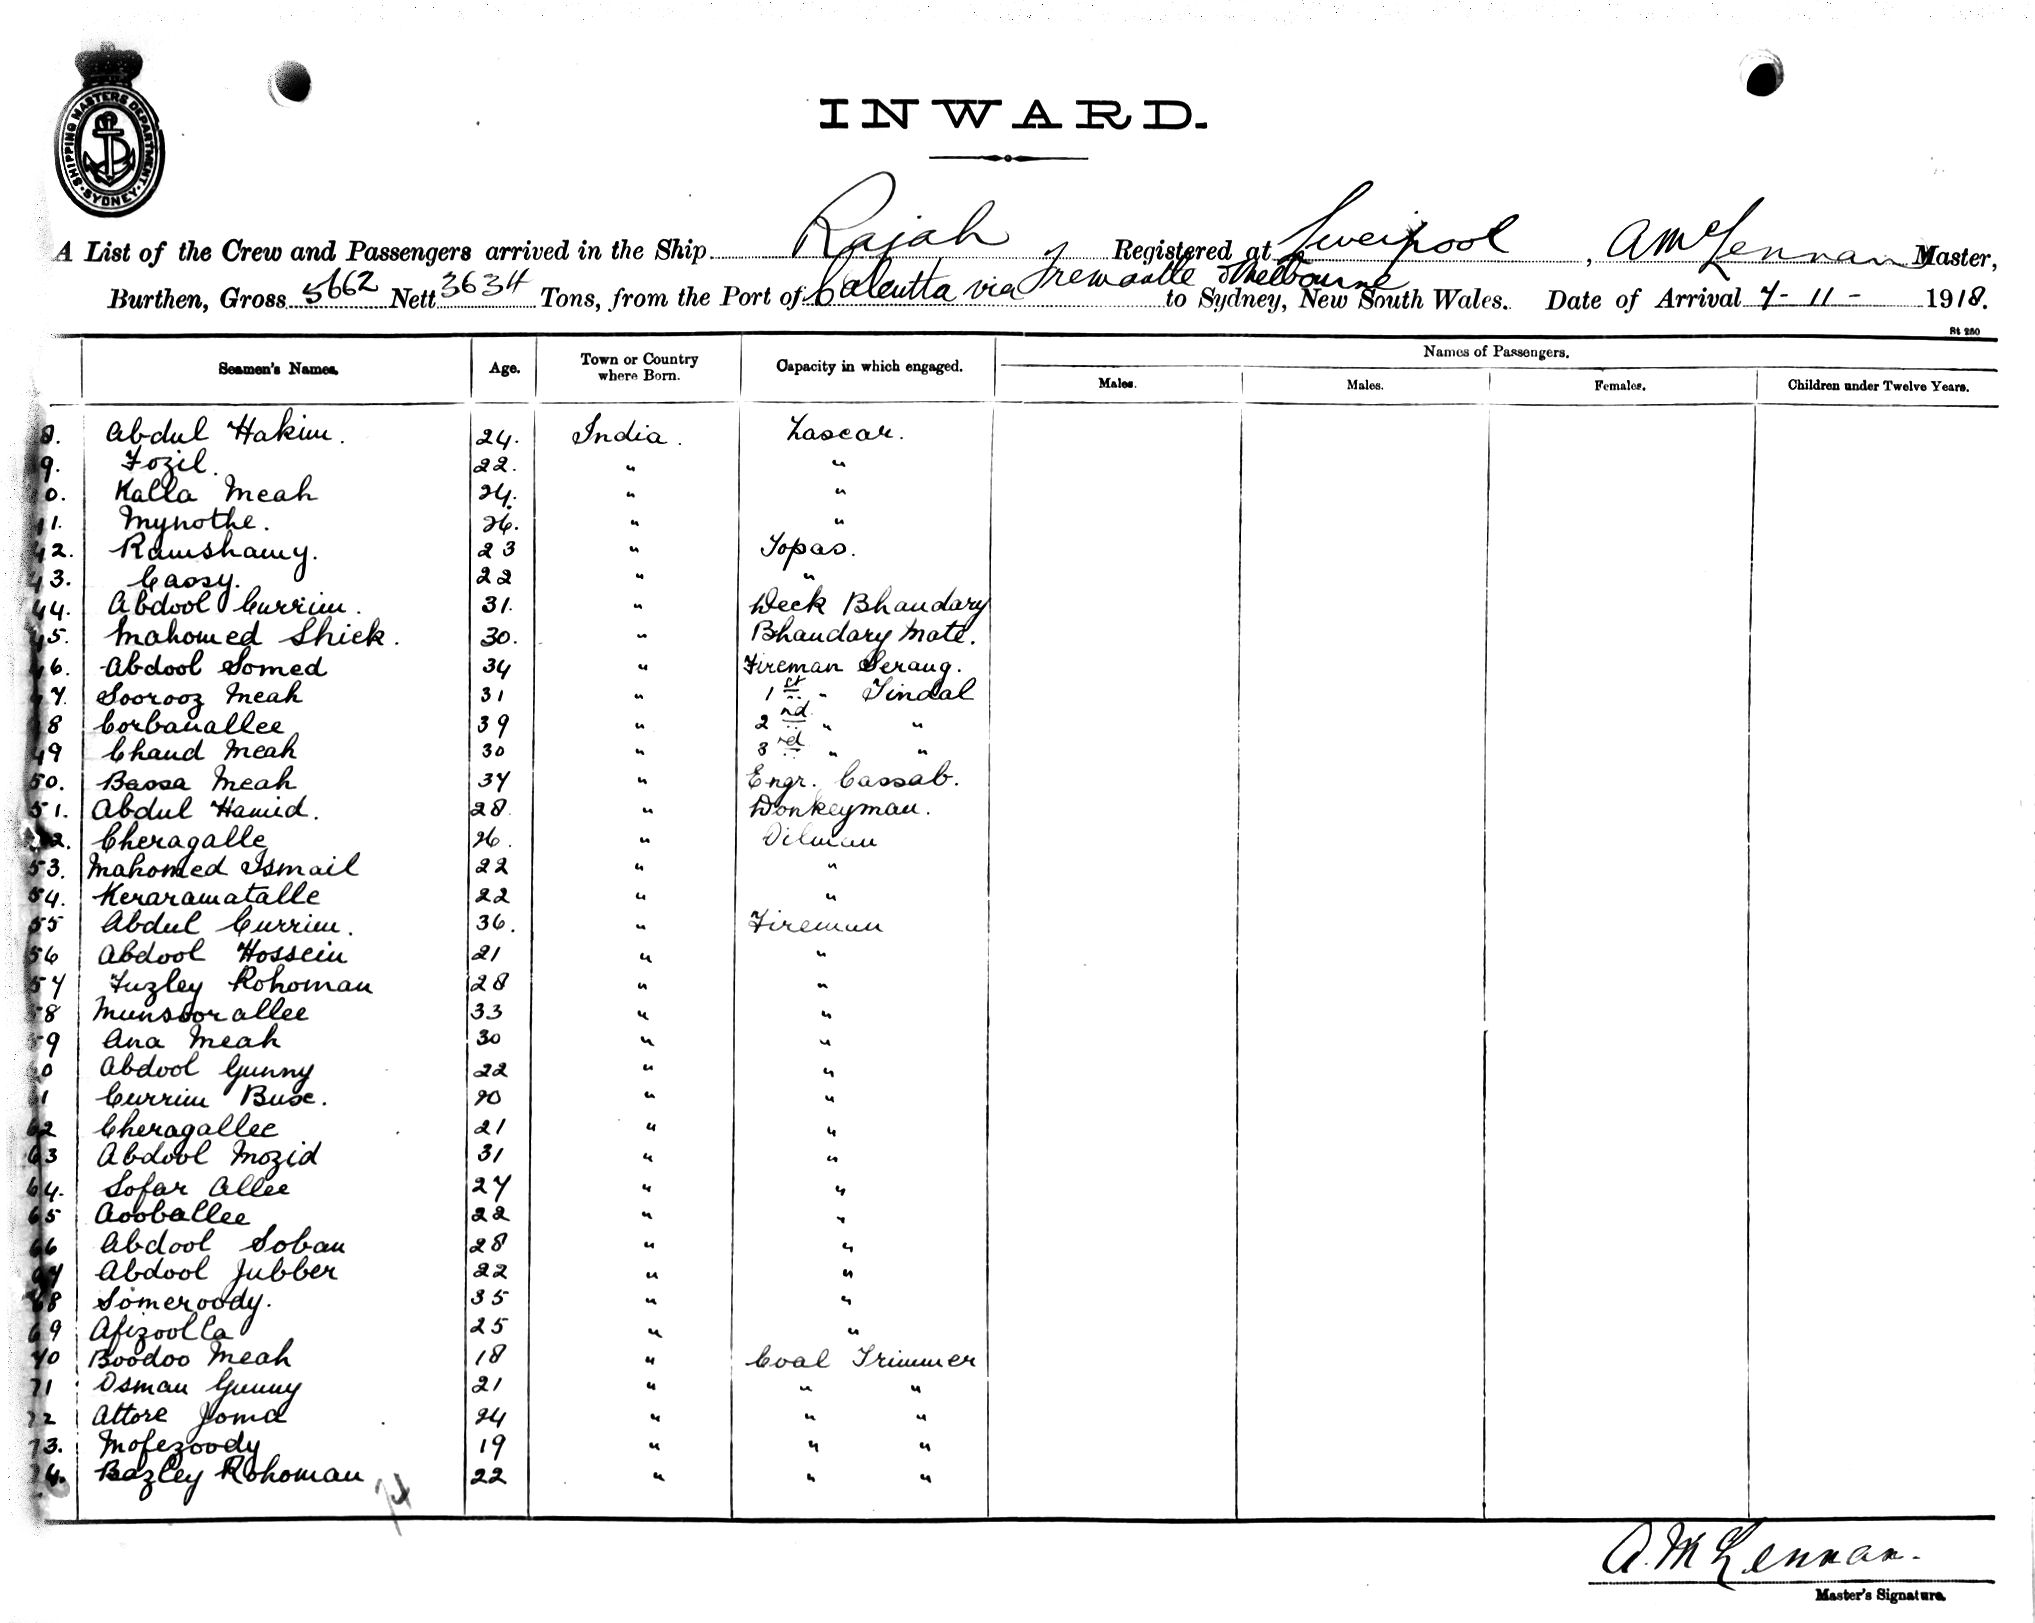 SHIPPING MASTERS DEPARTMENT. SYDNEY
INWARD.
A List of the Crew and Passengers arrived in the Ship Rajah Registered at Liverpool, A McLennan Master,
Burthen, Gross 5662 Nett 3634 Tons, from the Port of Calcutta via Fremantle & Melbourne to Sydney, New South Wales. Date of Arrival 7-11-1918.
St 250
Seamen's Names. Age. Town or Country where Born. Capacity in which engaged. Names of Passengers.
Males. Males. Females. Children under Twelve Years.
8. Abdul Hakim. 24. India. Lascar.
9. Fozil. 22. " "
0. Kalla Meah 24. " "
1. Mynothe. 26. " "
42. Ramshamy. 23 " Topas.
43. Cassy. 22 " "
44. Abdool Currim. 31. " Deck Bhandary
45. Mahomed Shiek. 30. " Bhandary Mate.
46. Abdool Somed 34 " Fireman Serang.
47. Soorooz Meah 31 " 1st " Tindal
48 Corbanallee 39 " 2nd " "
49 Chand Meah 30 " 3rd " "
50. Bassa Meah 34 " Engr. Cassab.
51. Abdul Hamid. 28. " Donkeyman.
52. Cheragalle 26. " Oilman
53. Mahomed Ismail 22 " "
54. Keraramatalle 22 " "
55 Abdul Currim. 36. " Fireman
56 Abdool Hossein 21 " "
57 Fuzley Rohoman 28 " "
58 Munsoorallee 33 " "
59 Ana Meah 30 " "
0 Abdool Gunny 22 " "
1 Currim Buse. 20 " "
62 Cheragallee 21 " "
63 Abdool Mozid 31 " "
64. Sofar Allee 27 " "
65 Aooballee 22 " "
66 Abdool Soban 28 " "
67 Abdool Jubber 22 " "
68 Someroody. 35 " "
69 Afizoolla 25 " "
70 Boodoo Meah 18 " Coal Trimmer
71 Osman Gunny 21 " " "
72 Attore Joma 24 " " "
73. Mofezoody 19 " " "
74. Bazley Rohoman 22 " " "
74
A. McLennan.
Master's Signature.